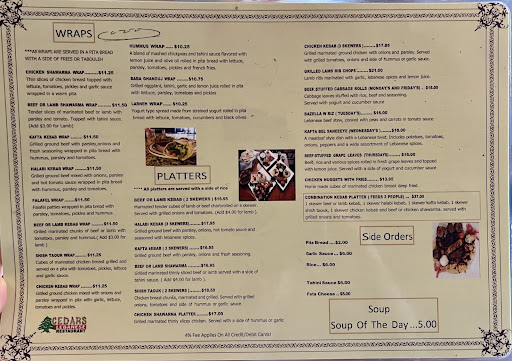 WRAPS
***All WRAPS ARE SERVED IN A PITA BREAD
WITH A SIDE OF FRIES OR TABOULEH
CHICKEN SHAWARMA WRAP......$11.25
Thin slices of chicken breast topped with
lettuce, tomatoes, pickles and garlic sauce
wrapped in a warm pita
BEEF OR LAMB SHAWARMA WRAP.....$11.50
Tender slices of marinated beef or lamb with
parsley and tomato. Topped with tahini sauce.
(Add $3.00 for Lamb)
KAFTA KEBAB WRAP .....$11.50
Grilled ground beef with parsley, onions and
fresh seasoning wrapped in pita bread with
hummus, parsley and tomatoes.
HALABI KEBAB WRAP .....$11.50
Grilled ground beef mixed with onions, parsley
and hot tomato sauce wrapped in pita bread
with hummus, parsley and tomatoes.
FALAFEL WRAP .....$11.50
Falafel patties wrapped in pita bread with
parsley, tomatoes, pickles and hummus.
BEEF OR LAMB KEBAB WRAP .....$11.50
Grilled chunks of marinated beef or lamb with
tomatoes, parsley and hummus.( Add $3.00 for
lamb )
SHISH TAOUK WRAP .....$11.25
Cubes of marinated chicken breast grilled and
served on a pita with tomatoes, pickles, lettuce
and garlic sauce.
CHICKEN KEBAB WRAP .....$11.25
Grilled ground chicken mixed with onions and
parsley wrapped in pita with garlic, lettuce,
tomatoes, and pickles.
CEDARS
LEBANESE
RESTAURANT
HUMMUS WRAP .....$10.25
A blend of mashed chickpeas and tahini sauce flavored with
lemon juice and olive oil rolled in pita bread with lettuce,
parsley, tomatoes, pickles and french fries.
BABA GHANOUJ WRAP .....$10.75
Grilled eggplant, tahini, garlic and lemon juice rolled in pita
with lettuce, parsley, tomatoes and pickles
LABNEH WRAP .....$10.25
Yogurt type spread made from strained yogurt rolled in pita
bread with lettuce, tomatoes, cucumbers and black olives
PLATTERS
**** All platters are served with a side of rice
BEEF OR LAMB KEBAB ( 2 SKEWERS ) $18.65
Marinated tender cubes of lamb or beef charbroiled on a skewer.
Served with grilled onions and tomatoes. ( Add $4.00 for lamb ).
HALABI KEBAB (2 SKEWERS) .....$17.85
Grilled ground beef with parsley, onions, hot tomato sauce and
seasoned with lebanese spices.
KAFTA KEBAB ( 2 SKEWERS) .....$16.85
Grilled ground beef with parsley, onions and fresh seasoning.
BEEF OR LAMB SHAWARMA .....$16.95
Grilled marinated thinly sliced beef or lamb served with a side of
tahini sauce. ( Add $4.00 for lamb ).
SHISH TAOUK ( 2 SKEWERS ).....$18.50
Chicken breast chunks, marinated and grilled. Served with grilled
onions, tomatoes and a side of hummus or garlic sauce
CHICKEN SHAWARMA PLATTER .....$17.00
Grilled marinated thinly slices chicken. Served with a side of hummus or garlic
4% Fee Applies On All Credit/Debit Cards!
CHICKEN KEBAB (2 SKEWERS)......$17.85
Grilled marinated ground chicken with onions and parsley. Served
with grilled tomatoes, onions and side of hummus or garlic sauce.
GRILLED LAMB RIB CHOPS .....$21.00
Lamb ribs marinated with garlic, lebanese spices and lemon juice.
BEEF STUFFED CABBAGE ROLLS (MONDAY'S AND FRIDAYS) ..
Cabbage leaves stuffed with rice, beef and seasoning.
Served with yogurt and cucumber sauce
BAZELLA W RIZ ( TUESDAY'S)......$16.00
Lebanese beef stew, cooked with peas and carrots in tomato sauce
KAFTA BEL SANIEEYE (WEDNESDAY'S )......$16.00
A meatloaf style dish with a Lebanese twist. Includes potatoes, tomatoes,
onions, peppers and a wide assortment of Lebanese spices.
BEEF STUFFED GRAPE LEAVES (THURSDAYS)......$16.00
Beef, rice and various spices rolled in fresh grape leaves and topped
with lemon juice. Served with a side of yogurt and cucumber sauce
CHICKEN NUGGETS WITH FRIES.....
Home made cubes of marinated chicken breast deep fried.
COMBINATION KEBAB PLATTER ( FEEDS 2 PEOPLE) ...
1 skewer beef or lamb kebab, 1 skewer halabi kebab, 1 skewer kafta kebab, 1 skewer
shish taouk, 1 skewer chicken kebab and served with
grilled onions and tomatoes.
Side Orders
Pita Bread....$2.00
Garlic Sauce....$5.00
Rice....$6.00
Tahini Sauce $4.00
Feta Cheese ...$5.00
Soup
Soup Of The Day...5.00